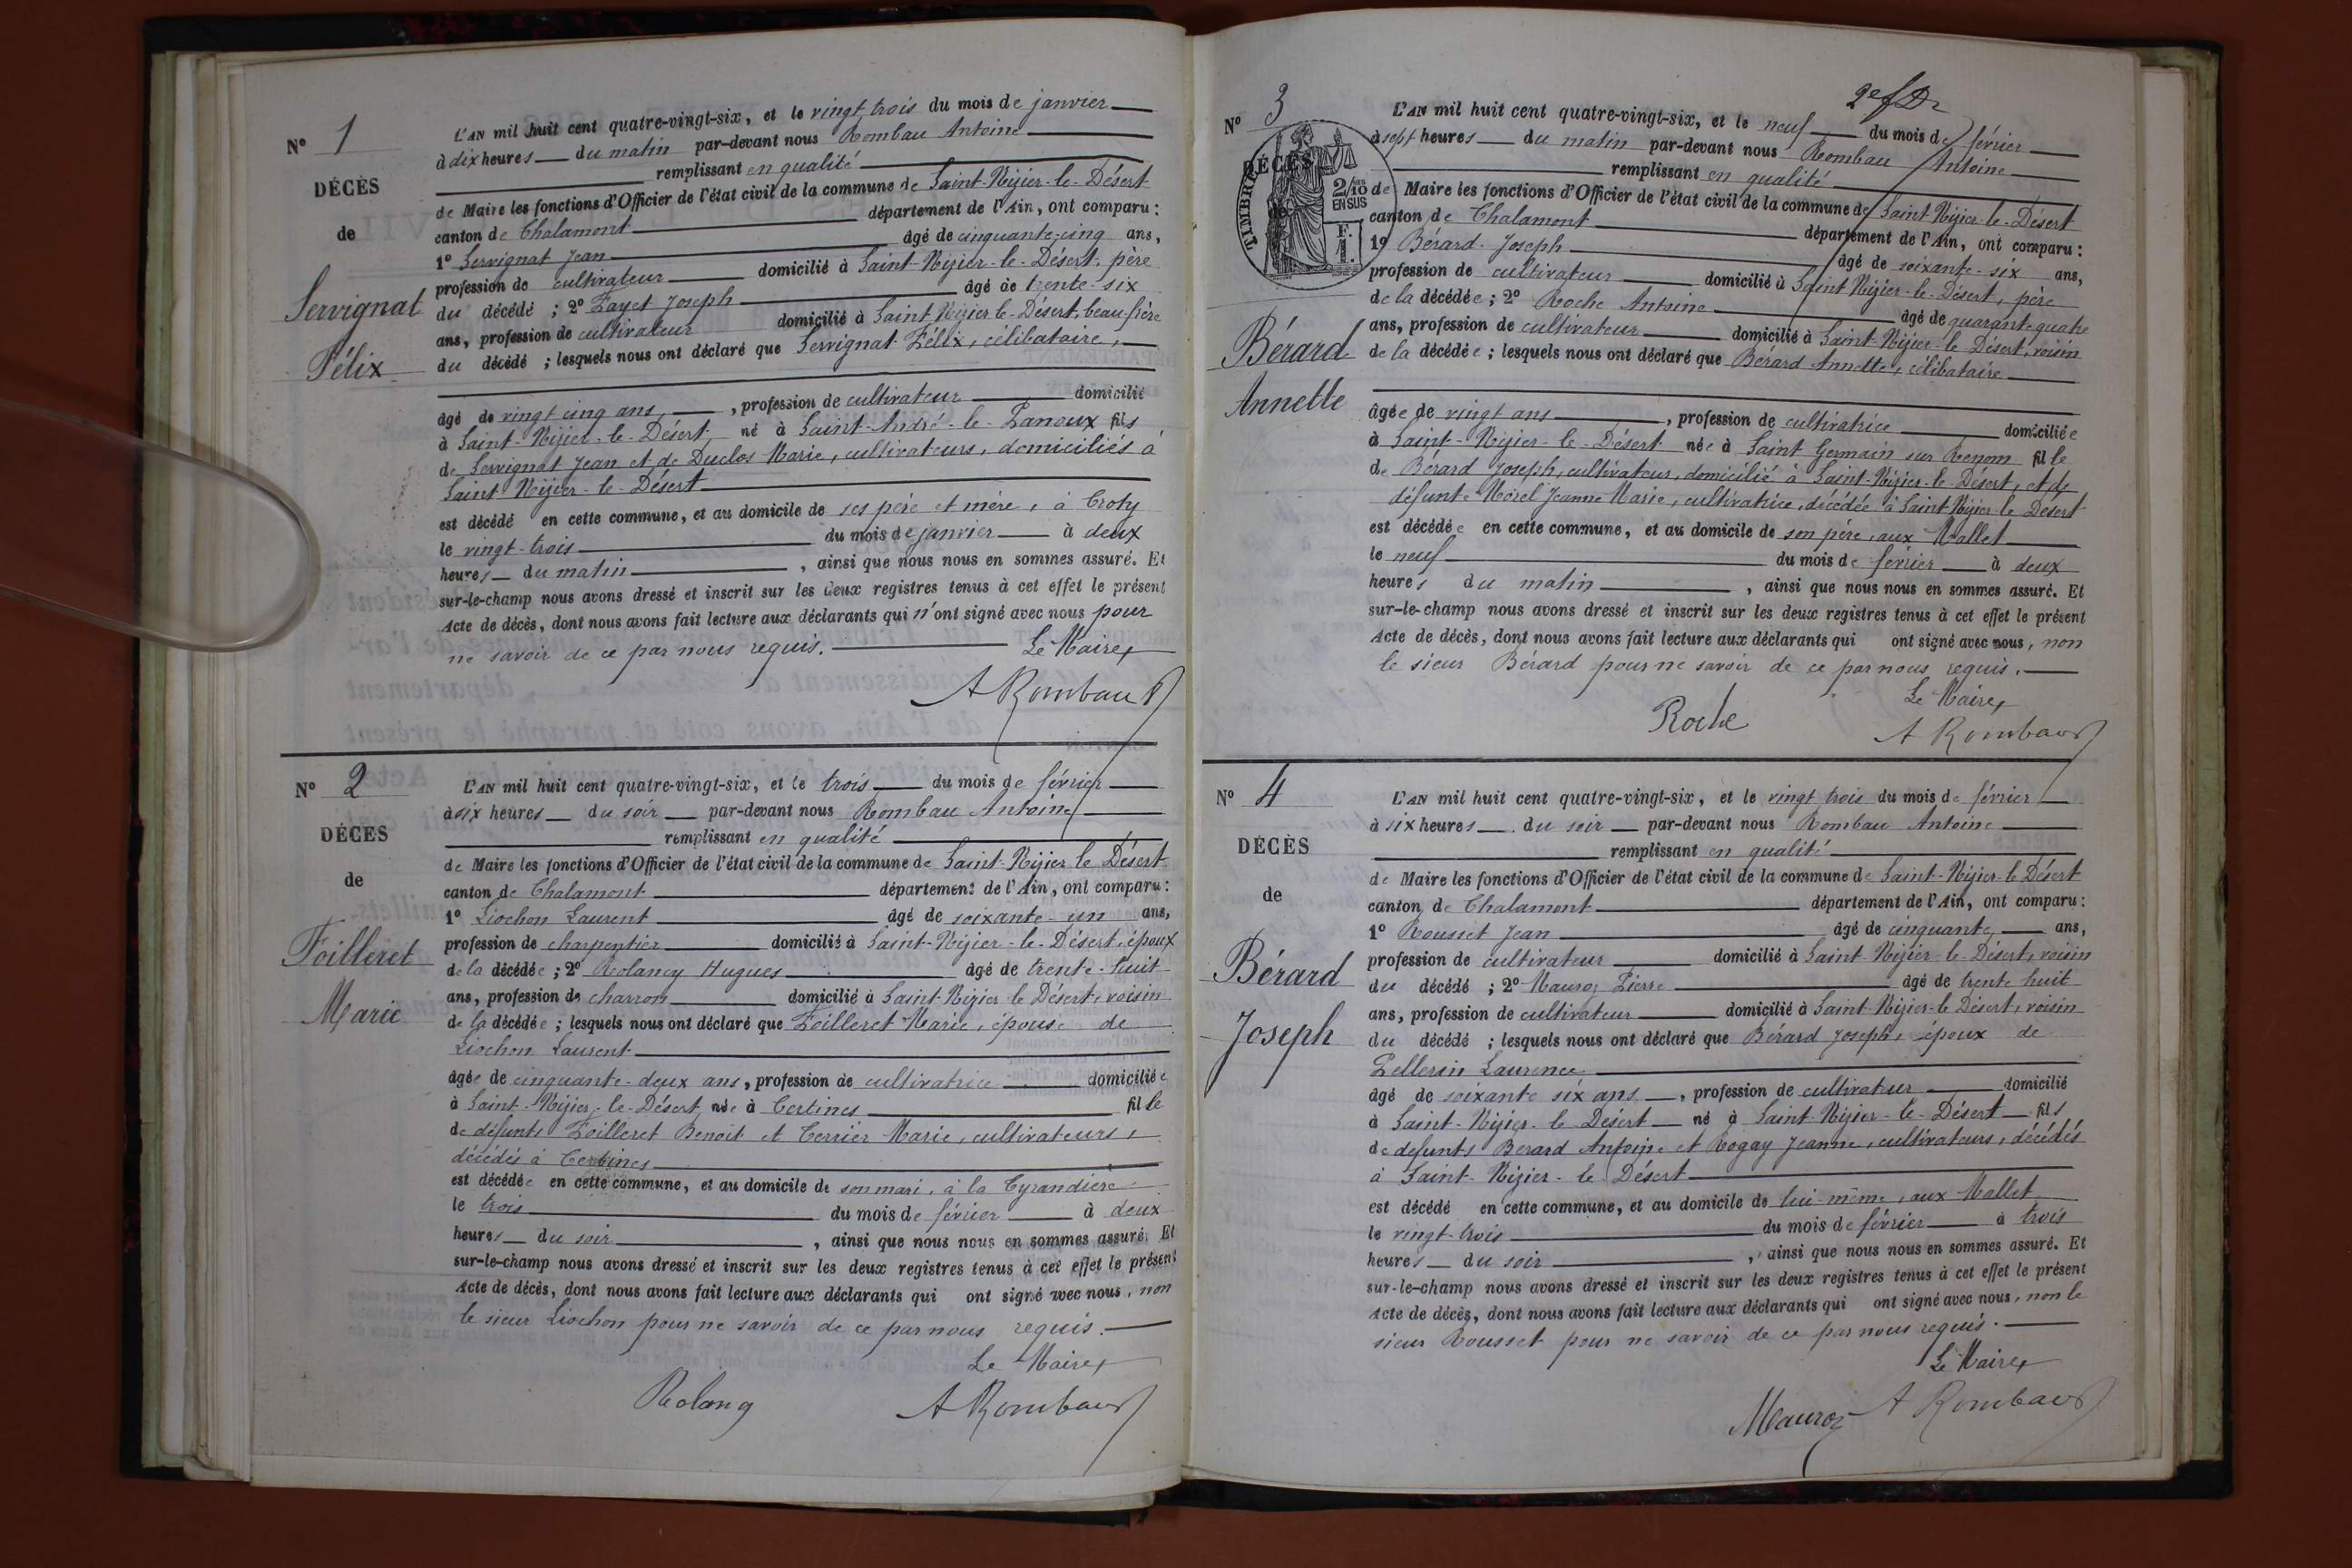 Nº 1
DÉCÈS
de
Servignat
Félix
L'AN mil huit cent quatre-vingt-six, et le vingt trois du mois de janvier
à dix heures du matin par-devant nous Rombau Antoine
remplissant en qualité
de Maire les fonctions d'Officier de l'état civil de la commune de Saint-Nizier-le-Désert
canton de Chalamont département de l'Ain, ont comparu :
1º Servignat Jean âgé de cinquante-cinq ans,
profession de cultivateur domicilié à Saint-Nizier-le-Désert, père
du décédé ; 2º Fayet Joseph âgé de trente-six
ans, profession de cultivateur domicilié à Saint Nizier le-Désert, beau-frère
du décédé ; lesquels nous ont déclaré que Servignat Félix, célibataire,
âgé de vingt cinq ans, profession de cultivateur domicilié
à Saint-Nizier-le-Désert, né à Saint-André-le-Panoux fils
de Servignat Jean et de Duclos Marie, cultivateurs, domiciliés à
Saint Nizier-le-Désert
est décédé en cette commune, et au domicile de ses père et mère, à Croty
le vingt-trois du mois de janvier à deux
heures du matin, ainsi que nous nous en sommes assuré. Et
sur-le-champ nous avons dressé et inscrit sur les deux registres tenus à cet effet le présent
Acte de décès, dont nous avons fait lecture aux déclarants qui n'ont signé avec nous pour
ne savoir de ce par nous requis. Le Maire,
A Rombau
Nº 2
DÉCES
de
Foilleret
Marie
L'AN mil huit cent quatre-vingt-six, et le trois du mois de février
à six heures du soir par-devant nous Rombau Antoine
remplissant en qualité
de Maire les fonctions d'Officier de l'état civil de la commune de Saint-Nizier le Désert
canton de Chalamont département de l'Ain, ont comparu :
1º Liochon Laurent âgé de soixante-un ans,
profession de charpentier domicilié à Saint-Nizier-le-Désert, époux
de la décédée ; 2º Rolancy Hugues âgé de trente-huit
ans, profession de charron domicilié à Saint-Nizier le Désert, voisin
de la décédée ; lesquels nous ont déclaré que Foilleret Marie, épouse de
Liochon Laurent
âgée de cinquante-deux ans, profession de cultivatrice domiciliée
à Saint-Nizier-le-Désert, née à Certines fille
de défunts Foilleret Benoit et Terrier Marie, cultivateurs,
décédés à Certines
est décédée en cette commune, et au domicile de son mari, à la Tyrandière
le trois du mois de février à deux
heures du soir, ainsi que nous nous en sommes assuré. Et
sur-le-champ nous avons dressé et inscrit sur les deux registres tenus à cet effet le présent
Acte de décès, dont nous avons fait lecture aux déclarants qui ont signé avec nous, non
le sieur Liochon pour ne savoir de ce par nous requis.
Le Maire,
Rolang A Rombau
2e f Dr
Nº 3
DÉCÈS
de
TIMBRE
2/10 EN SUS
F. 1.
Bérard
Annette
L'AN mil huit cent quatre-vingt-six, et le neuf du mois de février
à sept heures du matin par-devant nous Rombau Antoine
remplissant en qualité
de Maire les fonctions d'Officier de l'état civil de la commune de Saint Nizier-le-Désert
canton de Chalamont département de l'Ain, ont comparu :
1º Bérard Joseph âgé de soixante-six ans,
profession de cultivateur domicilié à Saint Nizier-le-Désert, père
de la décédée ; 2º Roche Antoine âgé de quarante quatre
ans, profession de cultivateur domicilié à Saint-Nizier-le Désert, voisin
de la décédée ; lesquels nous ont déclaré que Bérard Annette, célibataire
âgée de vingt ans, profession de cultivatrice domiciliée
à Saint-Nizier-le-Désert née à Saint Germain sur Renom fille
de Bérard Joseph, cultivateur, domicilié à Saint-Nizier-le-Désert, et de
défunte Morel Jeanne Marie, cultivatrice, décédée à Saint-Nizier-le Désert
est décédée en cette commune, et au domicile de son père, aux Mallet
le neuf du mois de février à deux
heures du matin, ainsi que nous nous en sommes assuré. Et
sur-le-champ nous avons dressé et inscrit sur les deux registres tenus à cet effet le présent
Acte de décès, dont nous avons fait lecture aux déclarants qui ont signé avec nous, non
le sieur Bérard pour ne savoir de ce par nous requis.
Le Maire,
Roche A Rombau
Nº 4
DÉCÈS
de
Bérard
Joseph
L'AN mil huit cent quatre-vingt-six, et le vingt trois du mois de février
à six heures du soir par-devant nous Rombau Antoine
remplissant en qualité
de Maire les fonctions d'Officier de l'état civil de la commune de Saint-Nizier-le Désert
canton de Chalamont département de l'Ain, ont comparu :
1º Rousset Jean âgé de cinquante ans,
profession de cultivateur domicilié à Saint-Nizier-le Désert, voisin
du décédé ; 2º Mauroz Pierre âgé de trente huit
ans, profession de cultivateur domicilié à Saint-Nizier-le Désert, voisin
du décédé ; lesquels nous ont déclaré que Bérard Joseph, époux de
Pellerin Laurence
âgé de soixante six ans, profession de cultivateur domicilié
à Saint-Nizier-le Désert né à Saint-Nizier-le-Désert fils
de défunts Berard Antoine et Rogay Jeanne, cultivateurs, décédés
à Saint-Nizier-le Désert
est décédé en cette commune, et au domicile de lui-même, aux Mallet
le vingt-trois du mois de février à trois
heures du soir, ainsi que nous nous en sommes assuré. Et
sur-le-champ nous avons dressé et inscrit sur les deux registres tenus à cet effet le présent
Acte de décès, dont nous avons fait lecture aux déclarants qui ont signé avec nous, non le
sieur Rousset pour ne savoir de ce par nous requis.
Le Maire,
Mauroz A Rombau